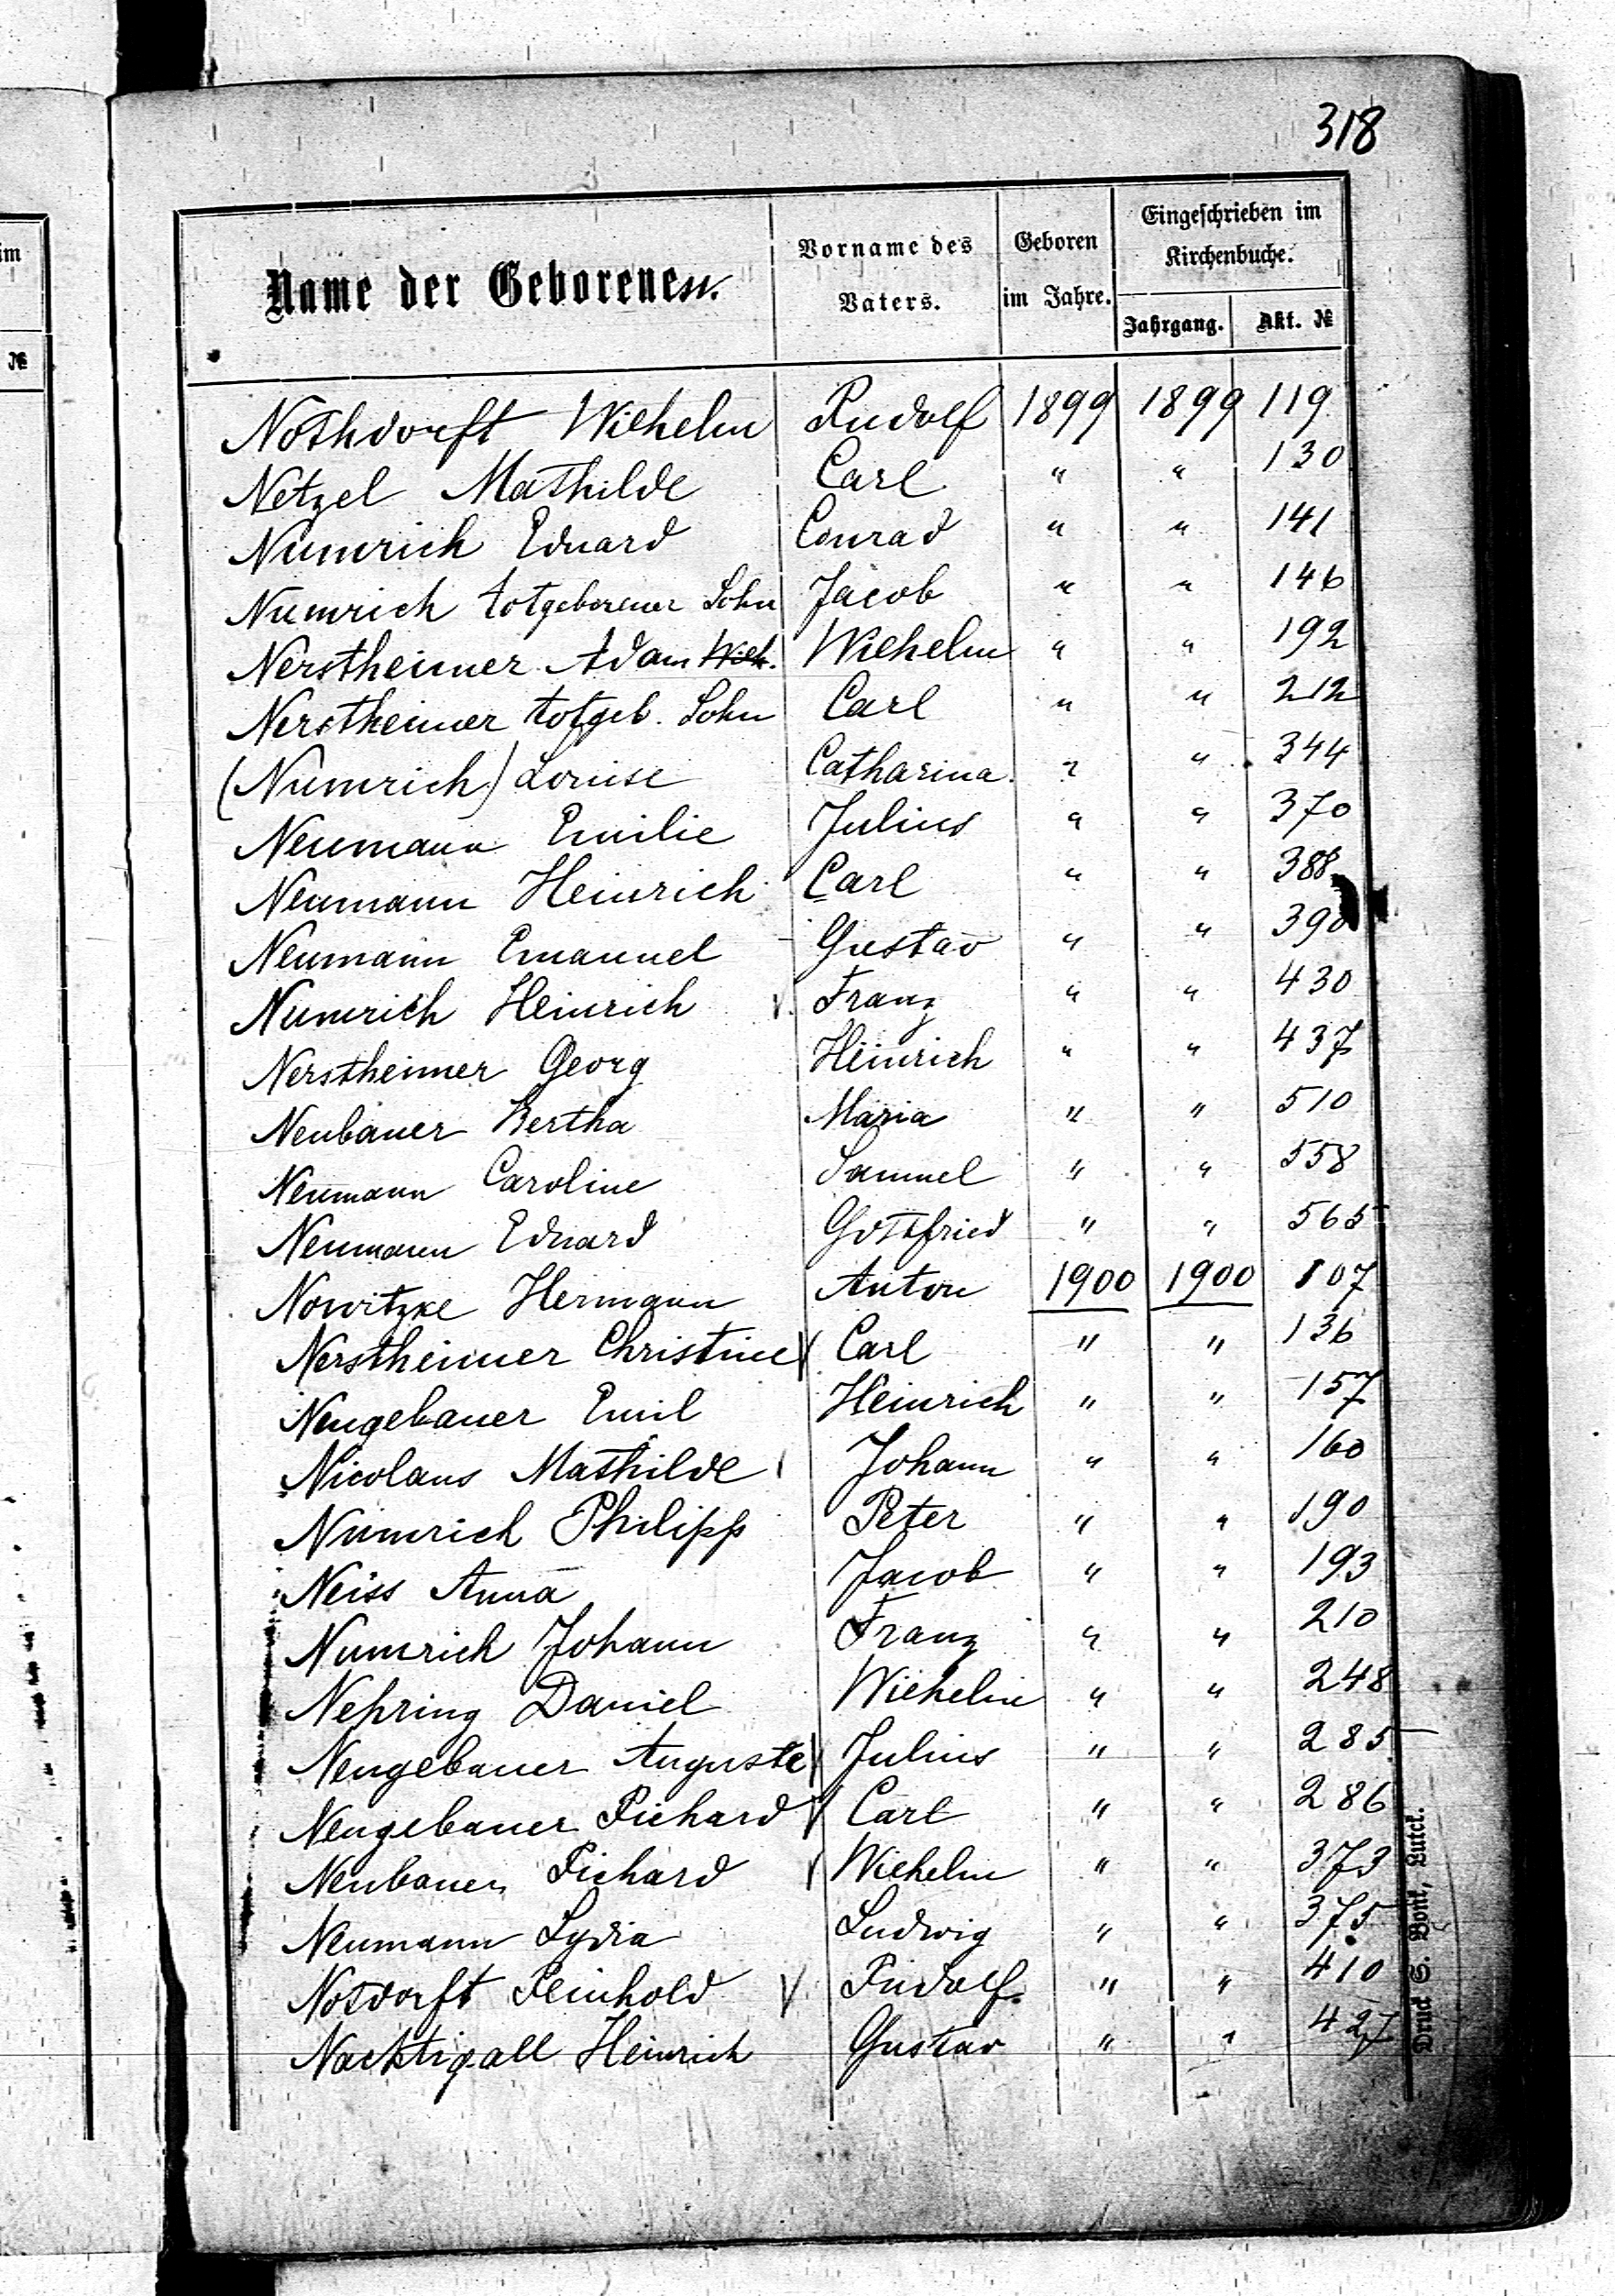 318
im
№
Name der Geborenen.
Vorname des Vaters.
Geboren im Jahre.
Eingeschrieben im Kirchenbuche.
Jahrgang. Akt. №
Nothdorft Wilhelm Rudolf 1899 1899 119
Netzel Mathilde Carl " " 130
Numrich Eduard Conrad " " 141
Numrich totgeborener Sohn Jacob " " 146
Nerstheimer Adam Wilh. Wilhelm " " 192
Nerstheimer totgeb. Sohn Carl " " 212
(Numrich) Louise Catharina " " 344
Neumann Emilie Julius " " 370
Neumann Heinrich Carl " " 388
Neumann Emanuel Gustav " " 390
Numrich Heinrich Franz " " 430
Nerstheimer Georg Heinrich " " 437
Neubauer Bertha Maria " " 510
Neumann Caroline Samuel " " 558
Neumann Eduard Gottfried " " 565
Nowitzke Hermann Anton 1900 1900 107
Nerstheimer Christine Carl " " 136
Neugebauer Emil Heinrich " " 157
Nicolaus Mathilde Johann " " 160
Numrich Philipp Peter " " 190
Neiss Anna Jacob " " 193
Numrich Johann Franz " " 210
Nehring Daniel Wilhelm " " 248
Neugebauer Auguste Julius " " 285
Neugebauer Richard Carl " " 286
Neubauer Richard Wilhelm " " 373
Neumann Lydia Ludwig " " 375
Notdorft Reinhold Rudolf " " 410
Nachtigall Heinrich Gustav " " 427
Druck S. Bonk, Lutck.